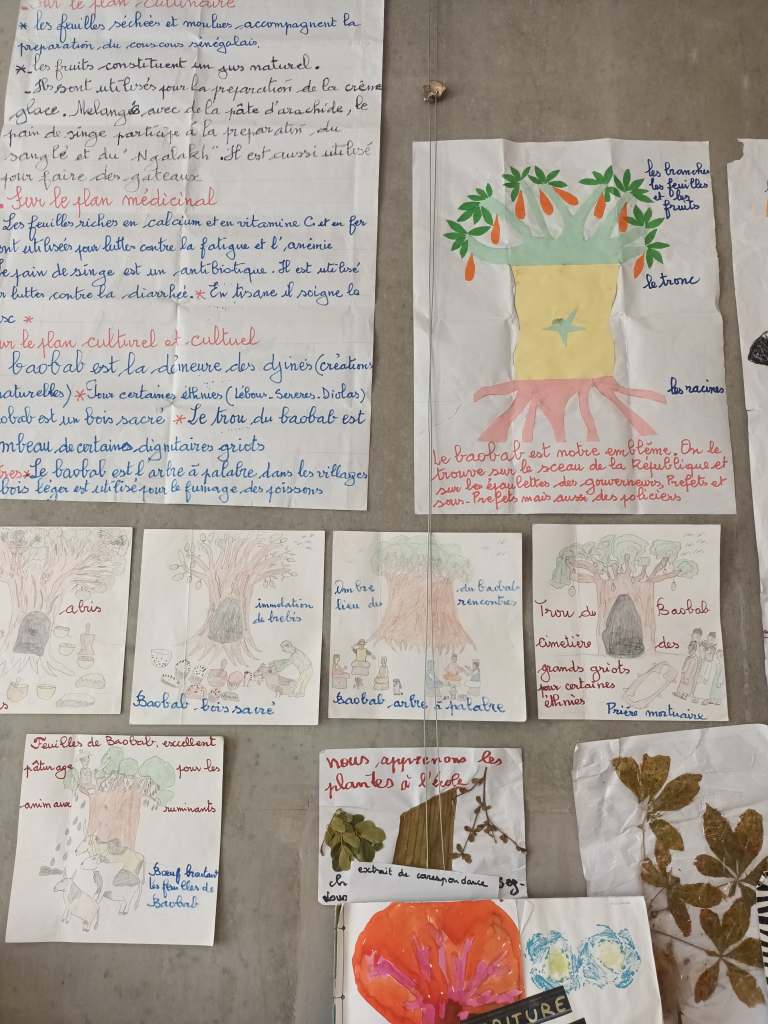 Sur le plan culinaire
* les feuilles séchées et moulues accompagnent la
préparation du couscous sénégalais.
* les fruits constituent un jus naturel.
- Ils sont utilisés pour la préparation de la crème
glace. Melangés avec de la pâte d'arachide, le
pain de singe participe à la preparation du
sanglé et du "Ngalakh". Il est aussi utilisé
pour faire des gâteaux
. Sur le plan médicinal
Les feuilles riches en calcium et en vitamine C et en fer
ont utilisés pour lutter contre la fatigue et l'anémie
le pain de singe est un antibiotique. Il est utilisé
r lutter contre la diarrhée. * En tisane il soigne la
*
ur le plan culturel et cultuel
baobab est la demeure des djinés (créations
naturelles) * Pour certaines éthinies (Lébous-Sereres-Diolas)
obab est un bois sacré * Le trou du baobab est
mbeau de certaines dignitaires griots
* Le baobab est l'arbre à palabre dans les villages
bois léger est utilisé pour le fumage des poissons
les branches
les feuilles
et les
fruits
le tronc
les racines
Le baobab est notre emblême. On le
trouve sur le sceau de la République et
sur les épaulettes des gouverneurs, Prefets et
sous-Prefets mais aussi des policiers
abris
immolation
de brebis
Baobab bois sacré
Ombre du baobab
lieu de rencontres
Baobab arbre à palabre
Trou de Baobab
cimetière des
grands griots
pour certaines
éthnies
Prière mortuaire
Feuilles de Baobab, excellent
pâturage pour les
animaux ruminants
Bœuf broutant
les feuilles de
Baobab
nous apprenons les
plantes à l'école
extrait de correspondance